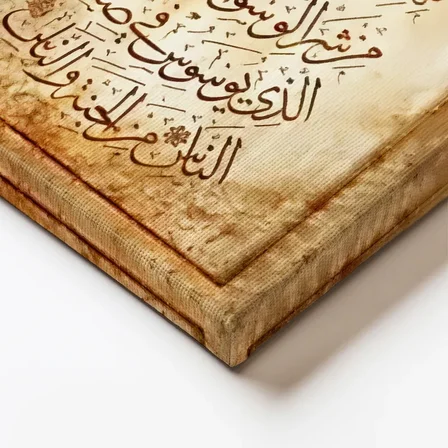 من شر الوسو
الذي يوسوس في صد
الناس من الجنة والناس